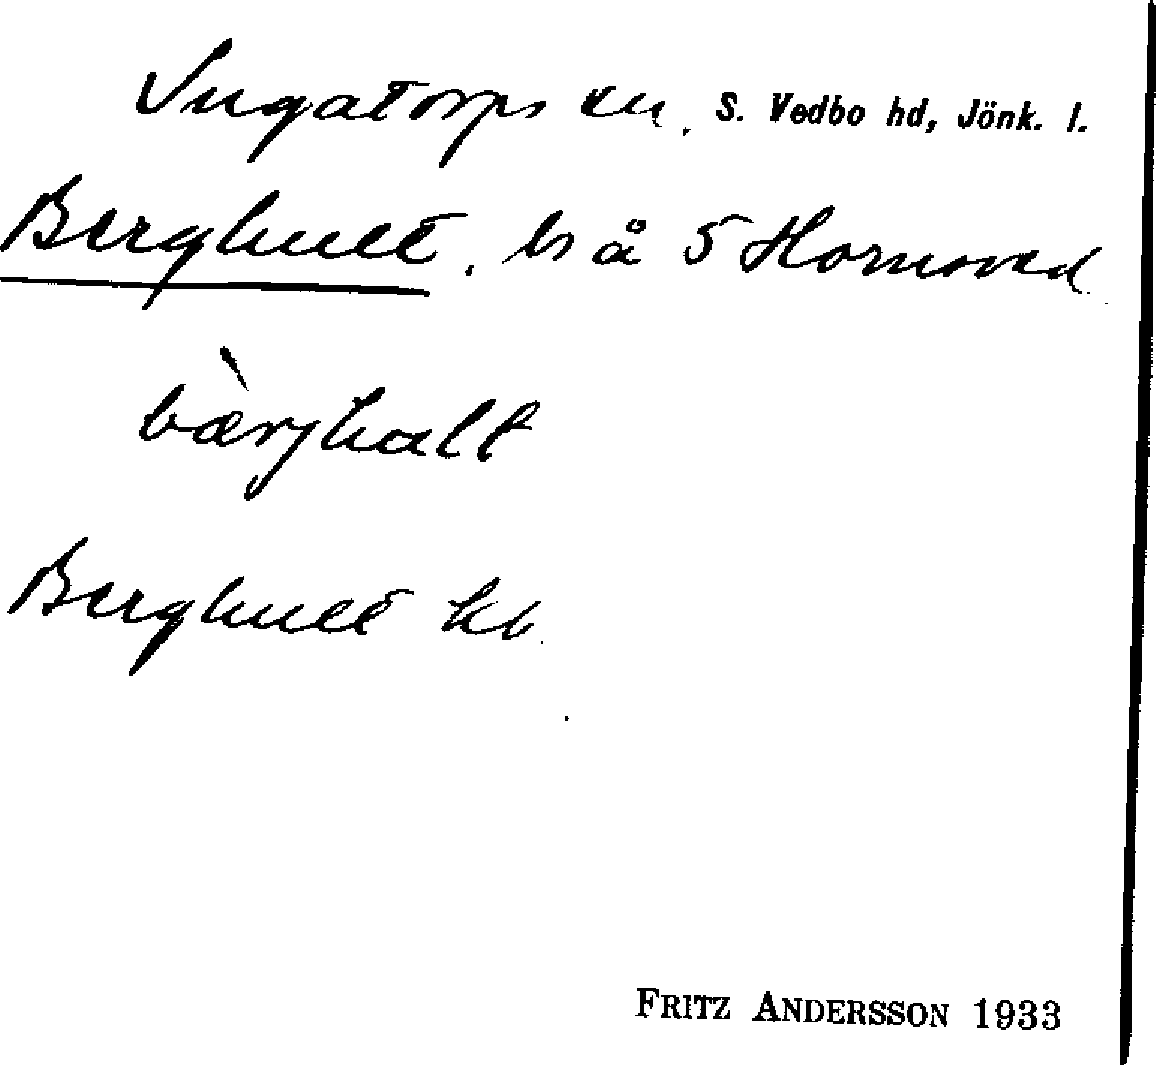 Ingatorps sn, S. Vedbo hd, Jönk. l.
Berghult, ls å 5 Hornsved
bærjhalt
Berghult kb
FRITZ ANDERSSON 1933